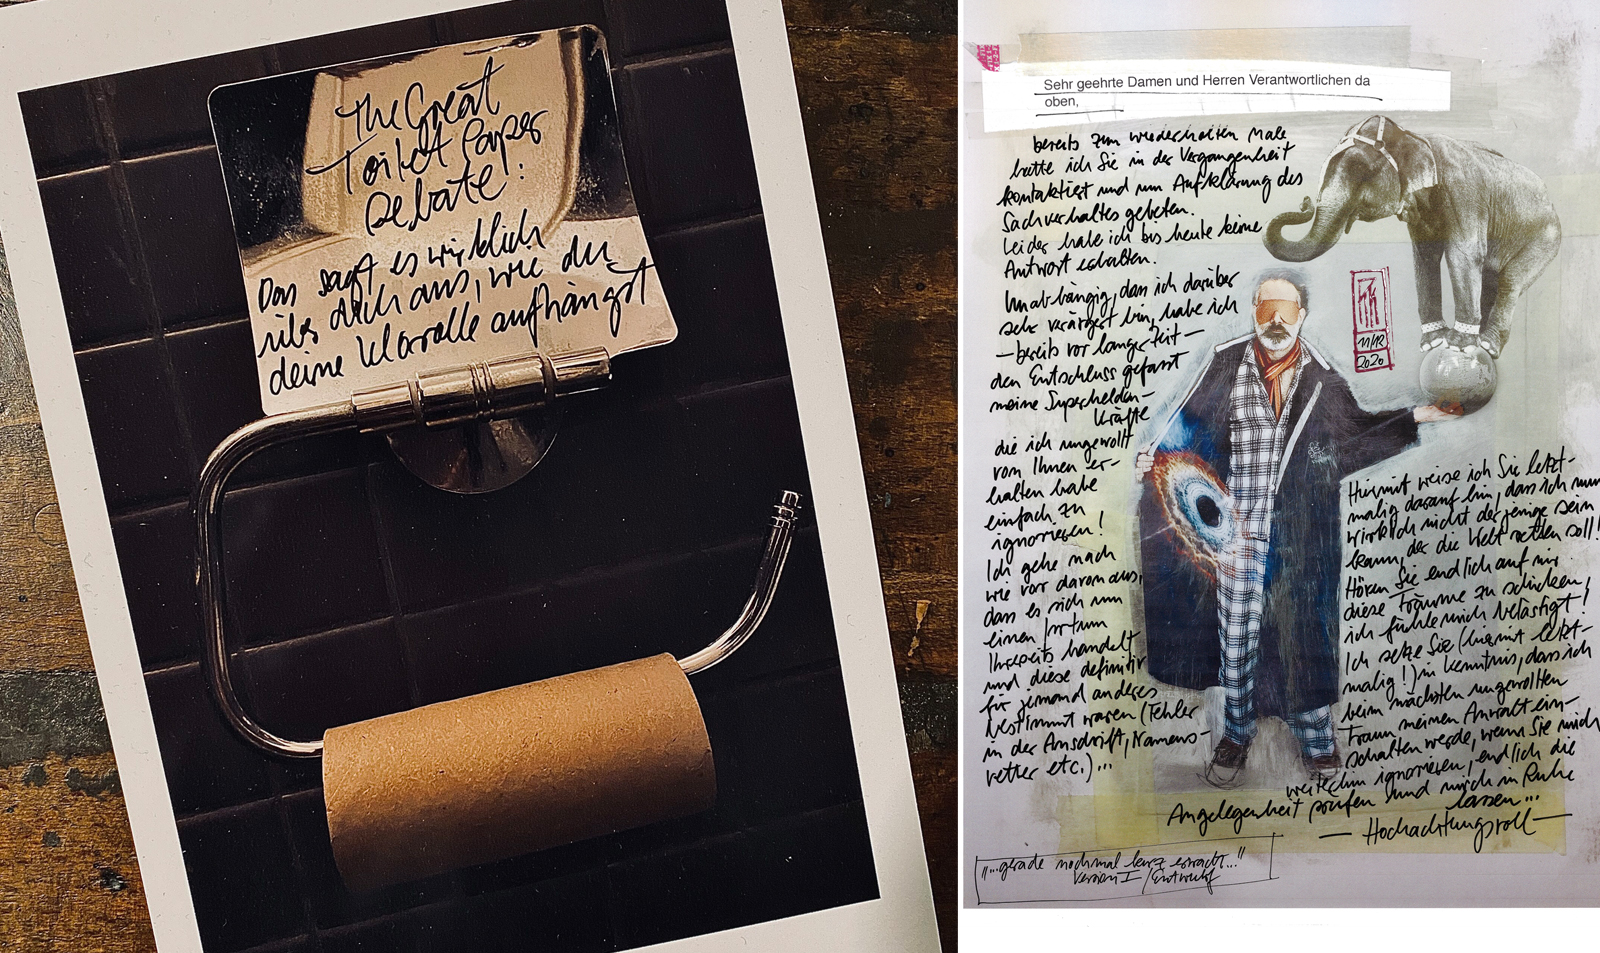 The Great
Toilet Paper
Debate:
Das sagt es wirklich
über dich aus, wie du
deine Klorolle aufhängst
Sehr geehrte Damen und Herren Verantwortlichen da
oben,
bereits zum wiederholten Male
hatte ich Sie in der Vergangenheit
kontaktiert und um Aufklärung des
Sachverhaltes gebeten.
Leider habe ich bis heute keine
Antwort erhalten.
Unabhängig, dass ich darüber
sehr verärgert bin, habe ich
— bereits vor langer Zeit —
den Entschluss gefasst
meine Superhelden-
Kräfte
die ich ungewollt
von Ihnen er-
halten habe
einfach zu
ignorieren!
Ich gehe nach
wie vor davon aus,
dass es sich um
einen Irrtum
Ihrerseits handelt
und diese definitiv
für jemand anderes
bestimmt waren (Fehler
in der Anschrift, Namens-
vetter etc.)...
11/12
2020
Hiermit weise ich Sie letzt-
malig darauf hin, dass ich nun
wirklich nicht derjenige sein
kann, der die Welt retten soll!
Hören Sie endlich auf mir
diese Träume zu schicken,
ich fühle mich belästigt!
Ich setze Sie (hiermit letzt-
malig!) in Kenntnis, dass ich
beim nächsten ungewollten
Traum meinen Anwalt ein-
schalten werde, wenn Sie mich
weiterhin ignorieren, endlich die
Angelegenheit prüfen und mich in Ruhe
lassen...
— Hochachtungsvoll —
"...gerade nochmal kurz erwacht..."
Version I / Entwurf